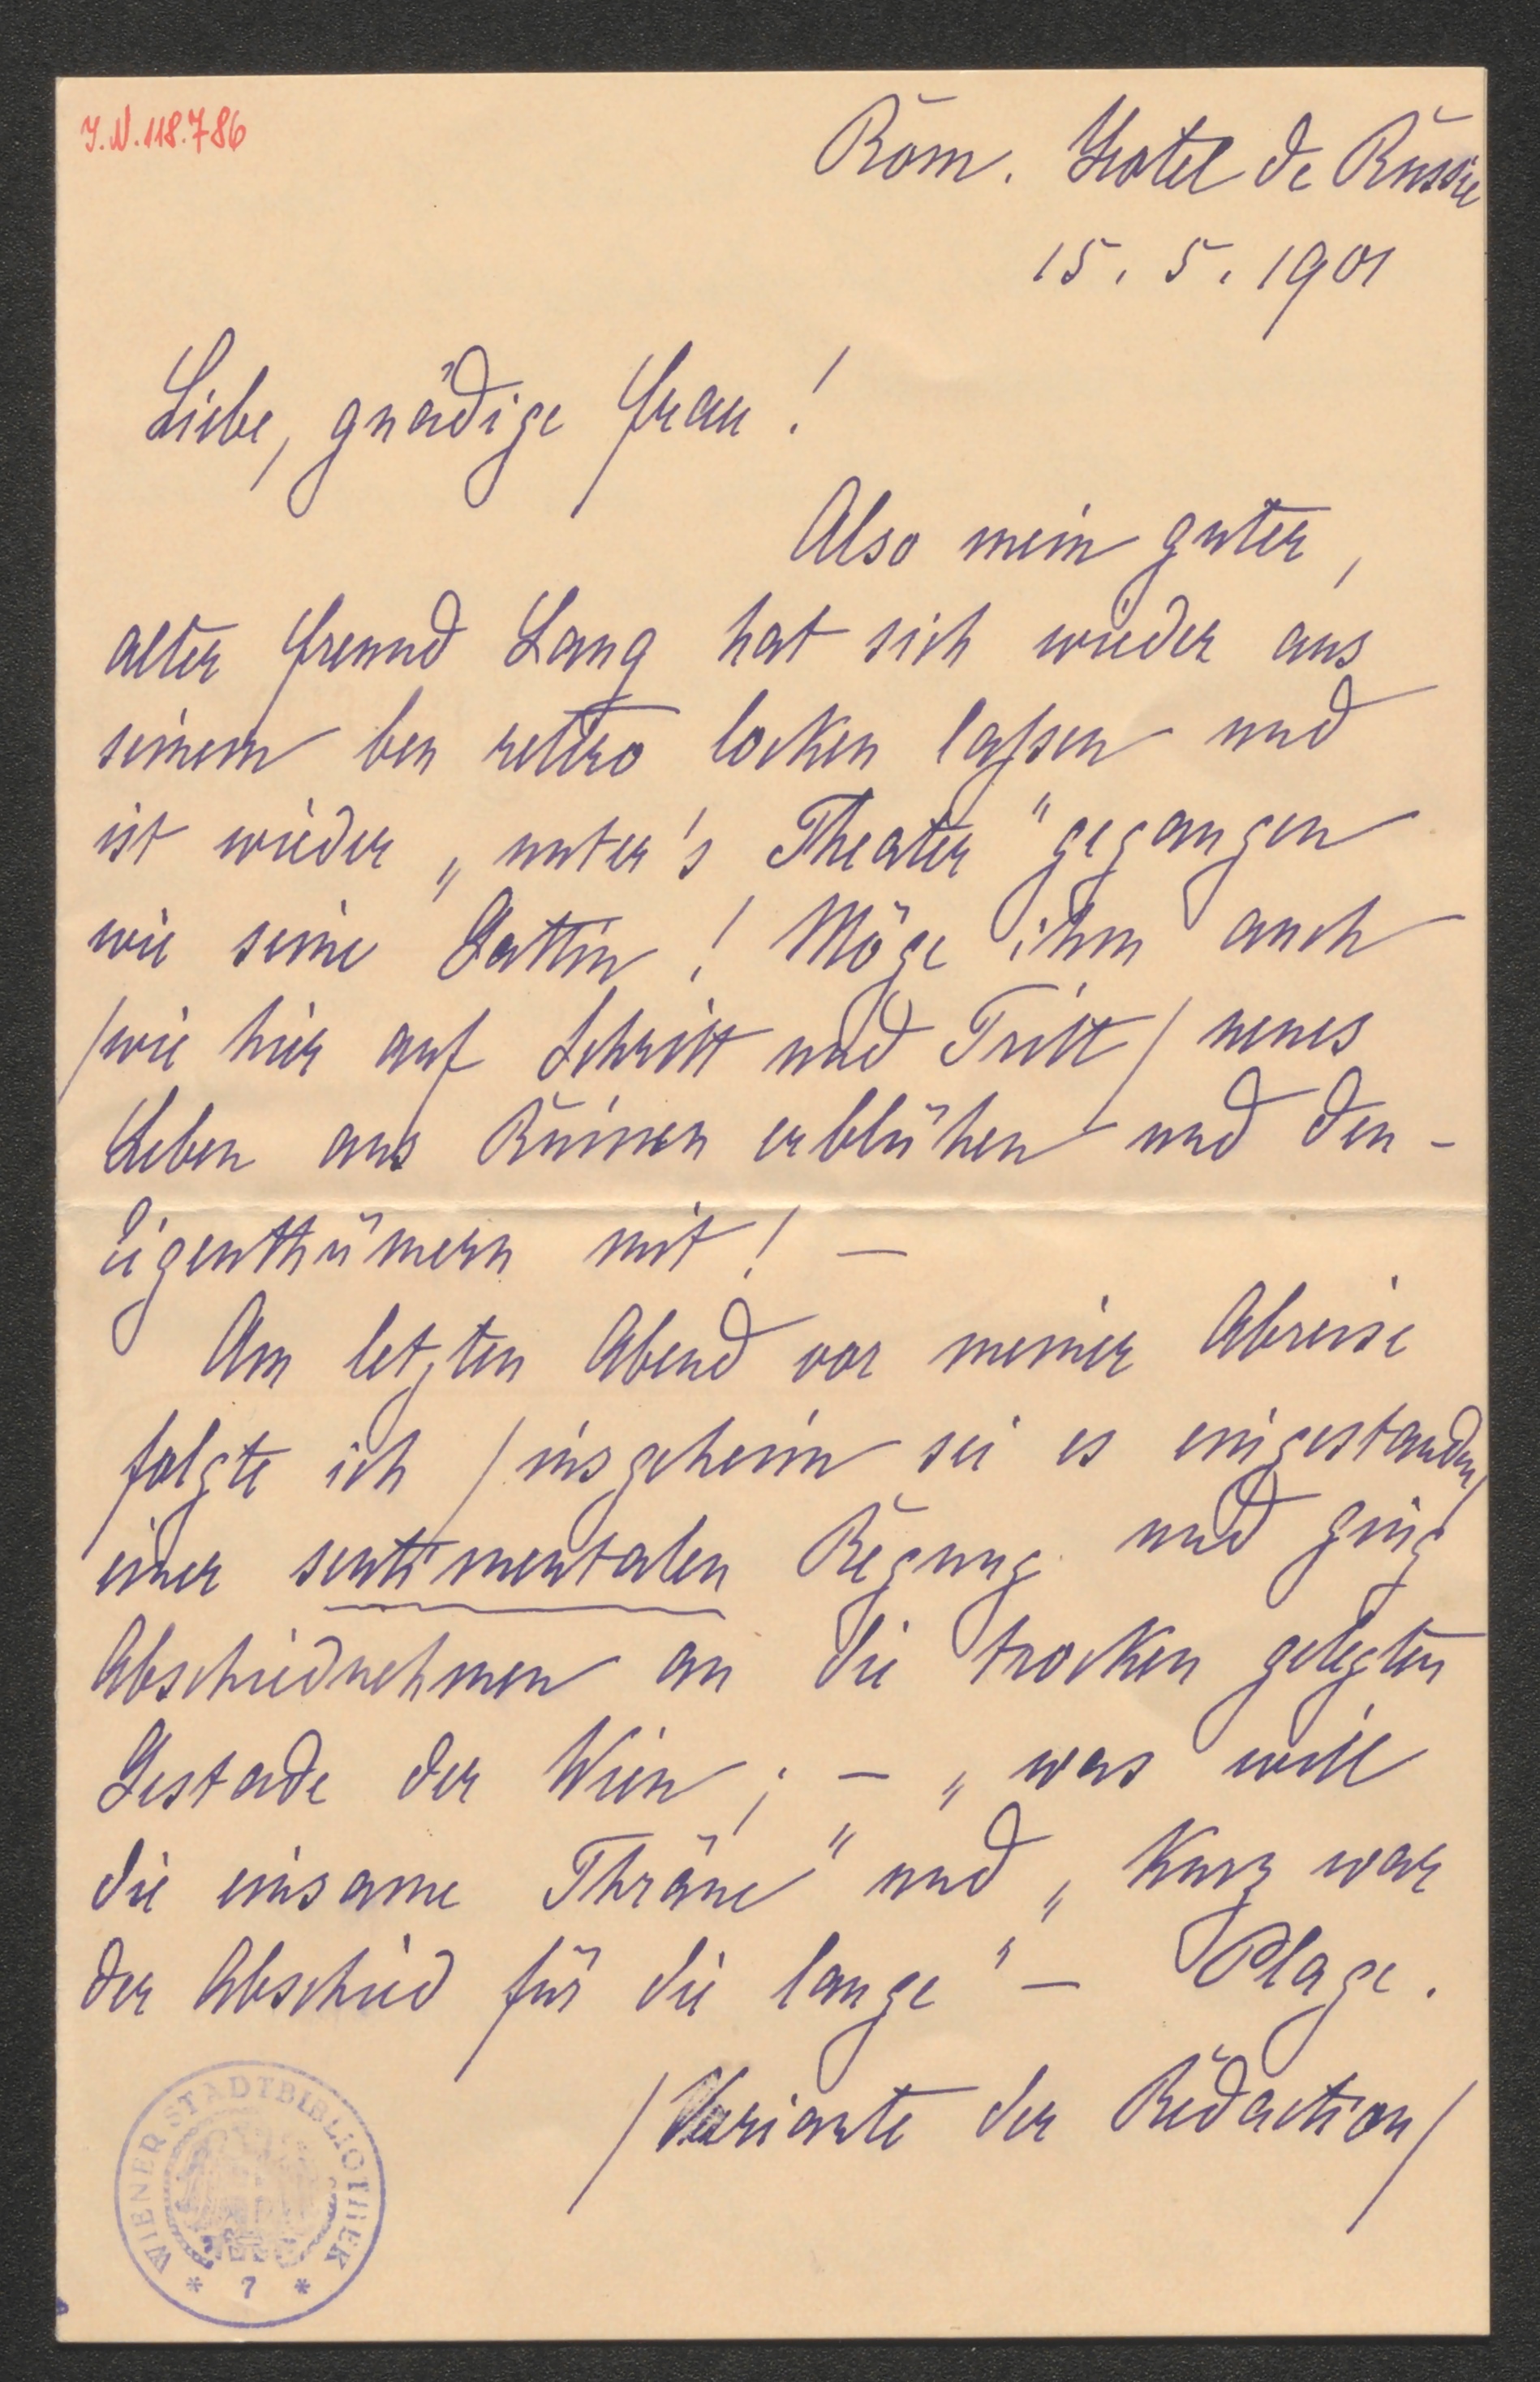 J.N. 118.786
Rom. Hotel de Russie
15. 5. 1901
Liebe, gnädige Frau!
Also mein guter,
alter Freund Lang hat sich wieder aus
seinem ben retiro locken lassen und
ist wieder „unter's Theater" gegangen
wie seine Gattin! Möge ihm auch
/wie hier auf Schritt und Tritt/ neues
Leben aus Ruinen erblühen und den -
Eigenthümern mit! —
Am letzten Abend vor meiner Abreise
folgte ich /insgeheim sei es eingestanden/
einer sentimentalen Regung und ging
Abschiednehmen an die trocken gelegten
Gestade der Wien; — „was will
die einsame Thräne" und „Kurz war
der Abschied für die lange" — Plage.
/Variante der Redaction/
WIENER STADTBIBLIOTHEK
* 7 *